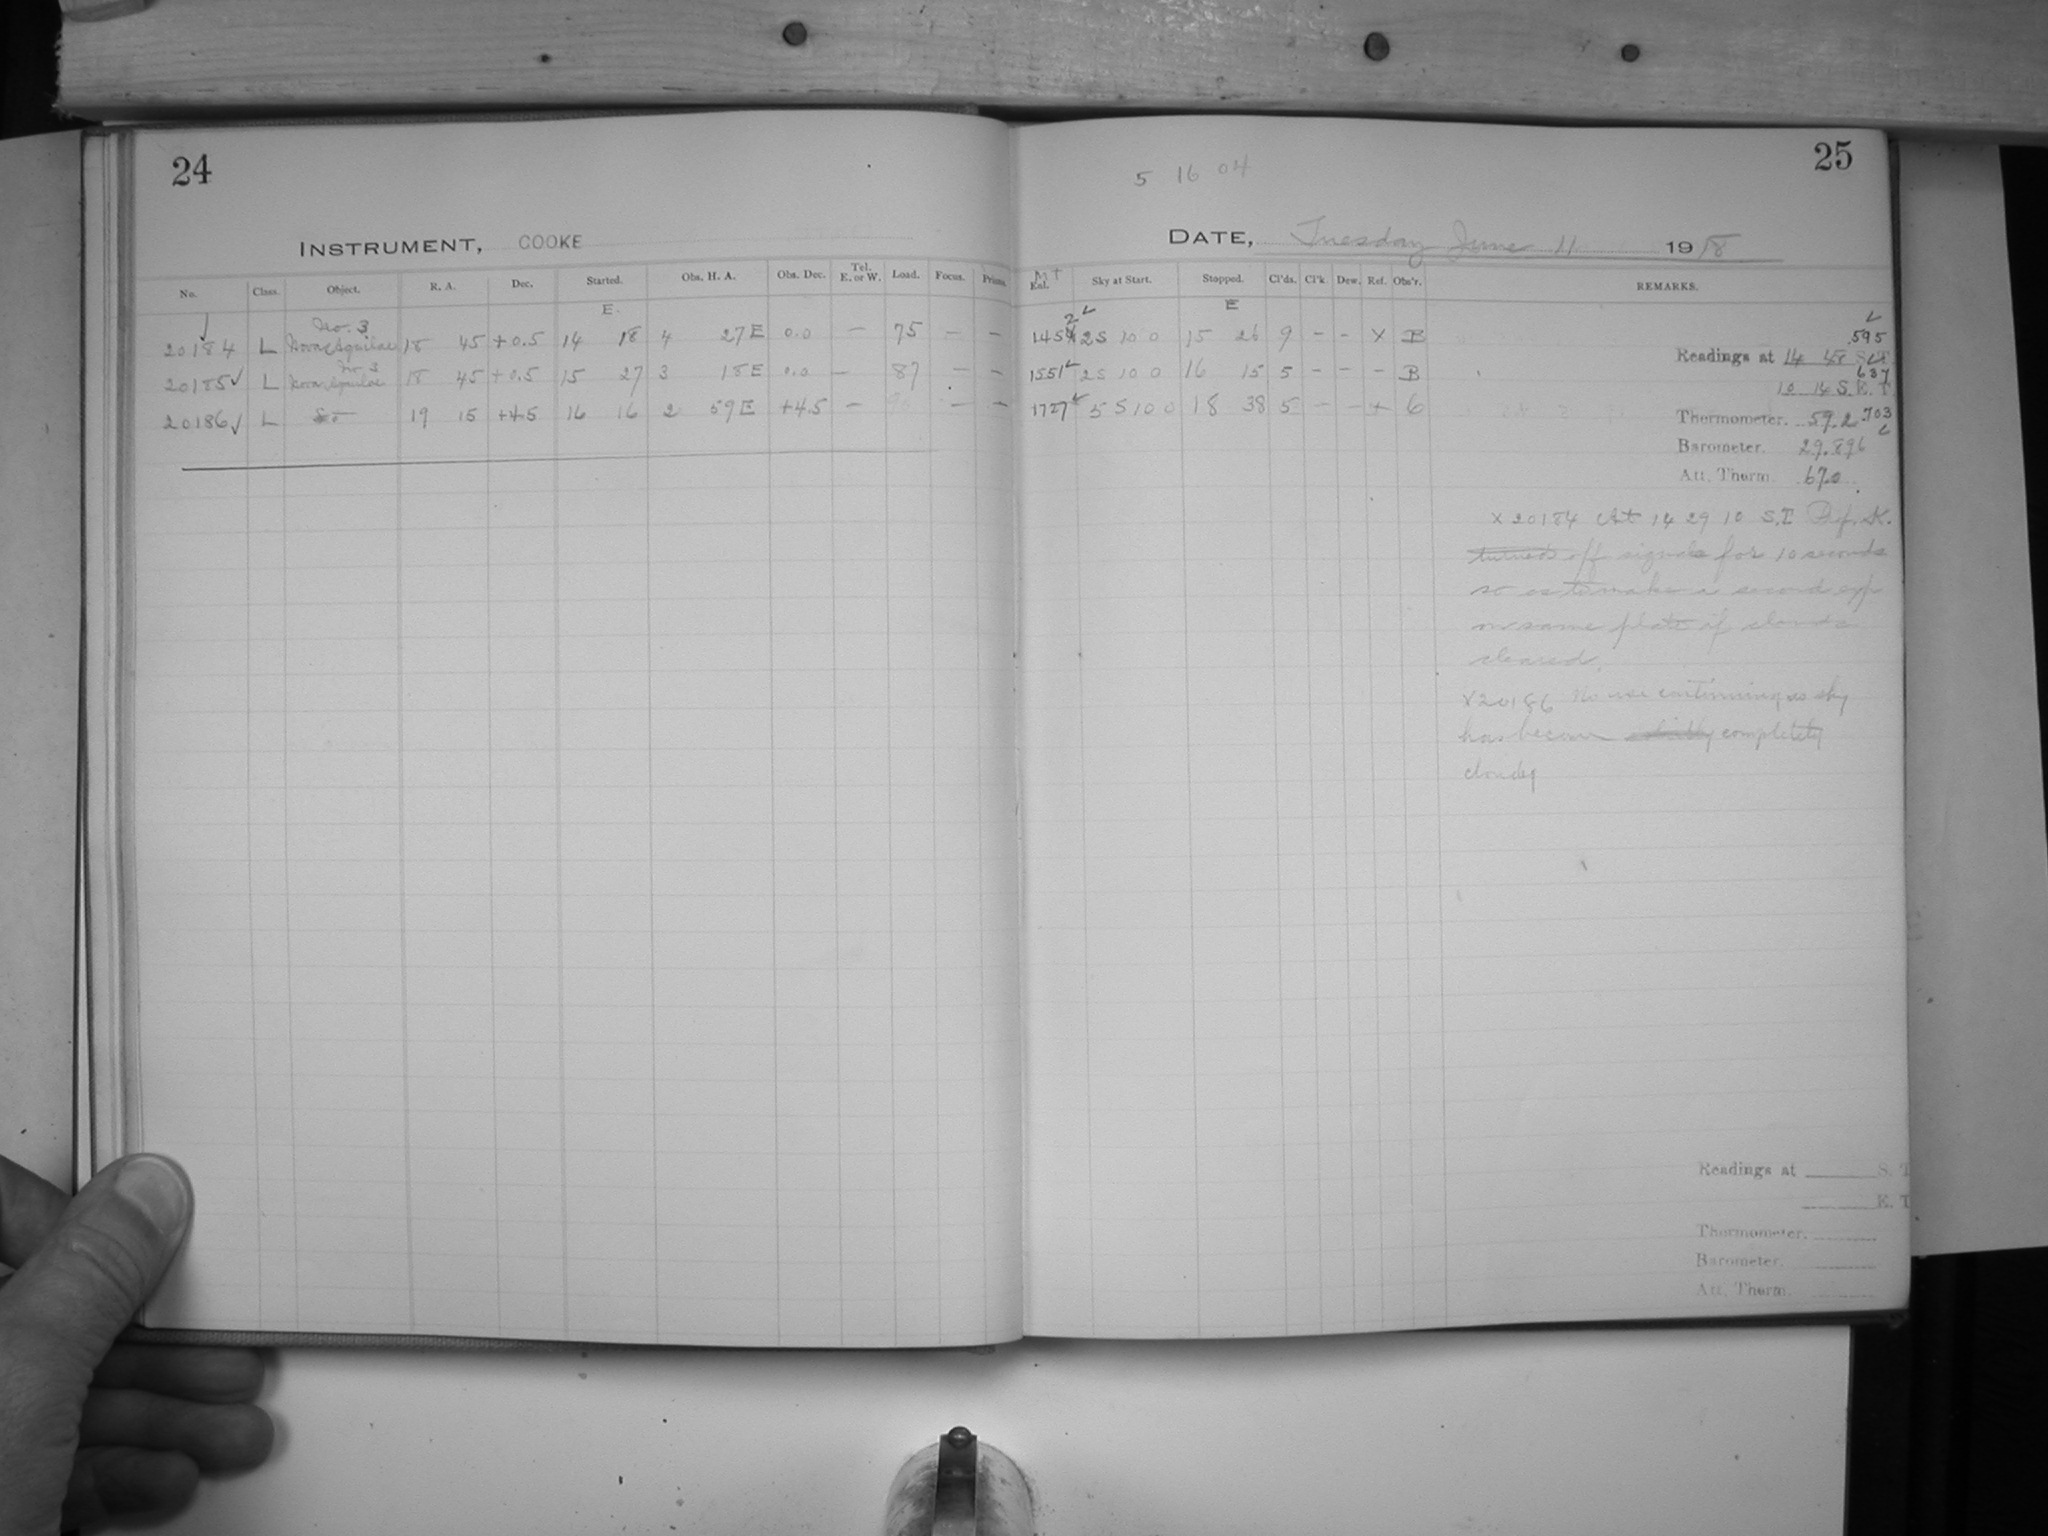 24
25
5 16 04
INSTRUMENT, COOKE
DATE, Tuesday June 11 1918
No. Class. Object. R. A. Dec. Started. Obs. H. A. Obs. Dec. Tel. E. or W. Load. Focus. Prism. M T Ent. Sky at Start. Stopped. Cl'ds. Cl'k. Dew. Ref. Obs'r. REMARKS.
E. E
20184 L No. 3 Nova Aquilae 18 45 +0.5 14 18 4 27 E 0.0 – 75 – – 145 2S 10 0 15 26 9 – – X B
20185 ✓ L No 3 Nova Aquilae 18 45 +0.5 15 27 3 18 E 0.0 – 87 – – 1551 2S 10 0 16 15 5 – – – B
20186 ✓ L 19 15 +4.5 16 16 2 59 E +4.5 – – – 1727 5 S 10 0 18 38 5 – – + 6
.595
Readings at 14 48 S. T
.637
10 14 S. E. T
Thermometer. 59.2 .703
Barometer. 29.896
Att. Therm. 67.0
X 20184 At 14 29 10 S.T Prof. K.
turned off signals for 10 seconds
so as to make a second exp
on same plate if clouds
cleared.
X 20186 No use continuing as sky
has become completely
cloudy
Readings at S. T
E. T
Thermometer.
Barometer.
Att. Therm.